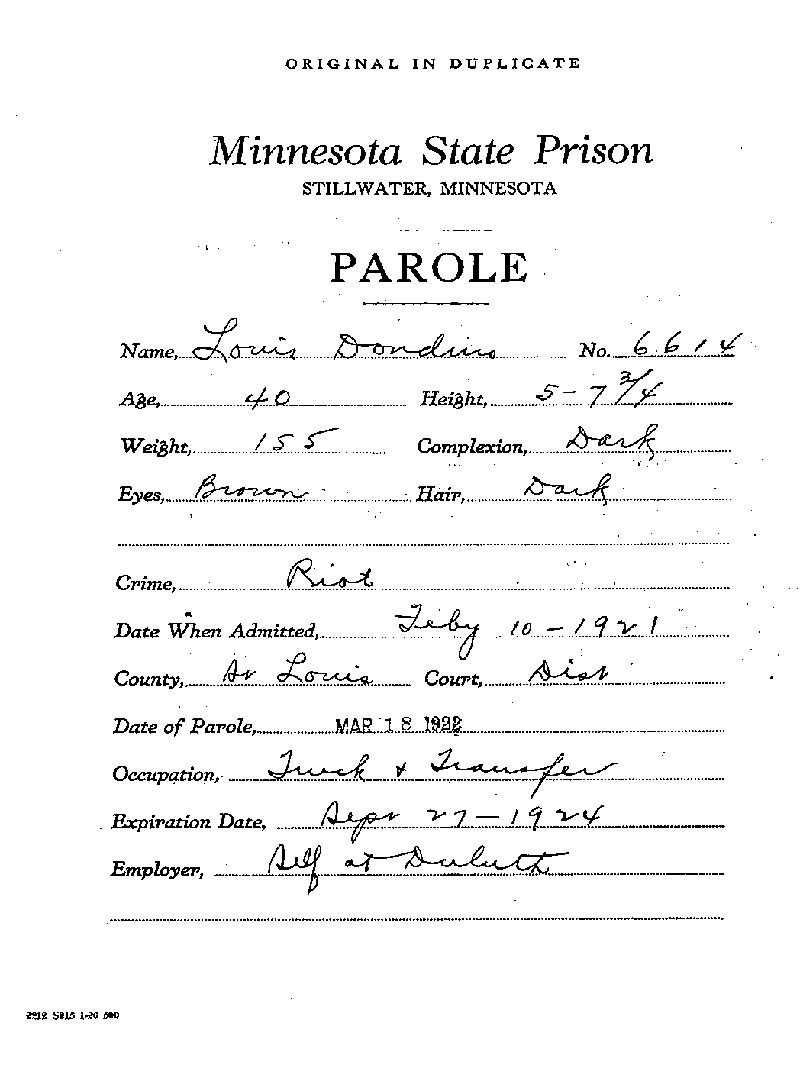 ORIGINAL IN DUPLICATE
Minnesota State Prison
STILLWATER, MINNESOTA
PAROLE
Name, Louis Dondino No. 6614
Age, 40 Height, 5-7 3/4
Weight, 155 Complexion, Dark
Eyes, Brown Hair, Dark
Crime, Riot
Date When Admitted, Feby 10-1921
County, St Louis Court, Dist
Date of Parole, MAR 18 1922
Occupation, Truck & Transfer
Expiration Date, Sept 27-1924
Employer, Self at Duluth
2912 5815 1-20 500